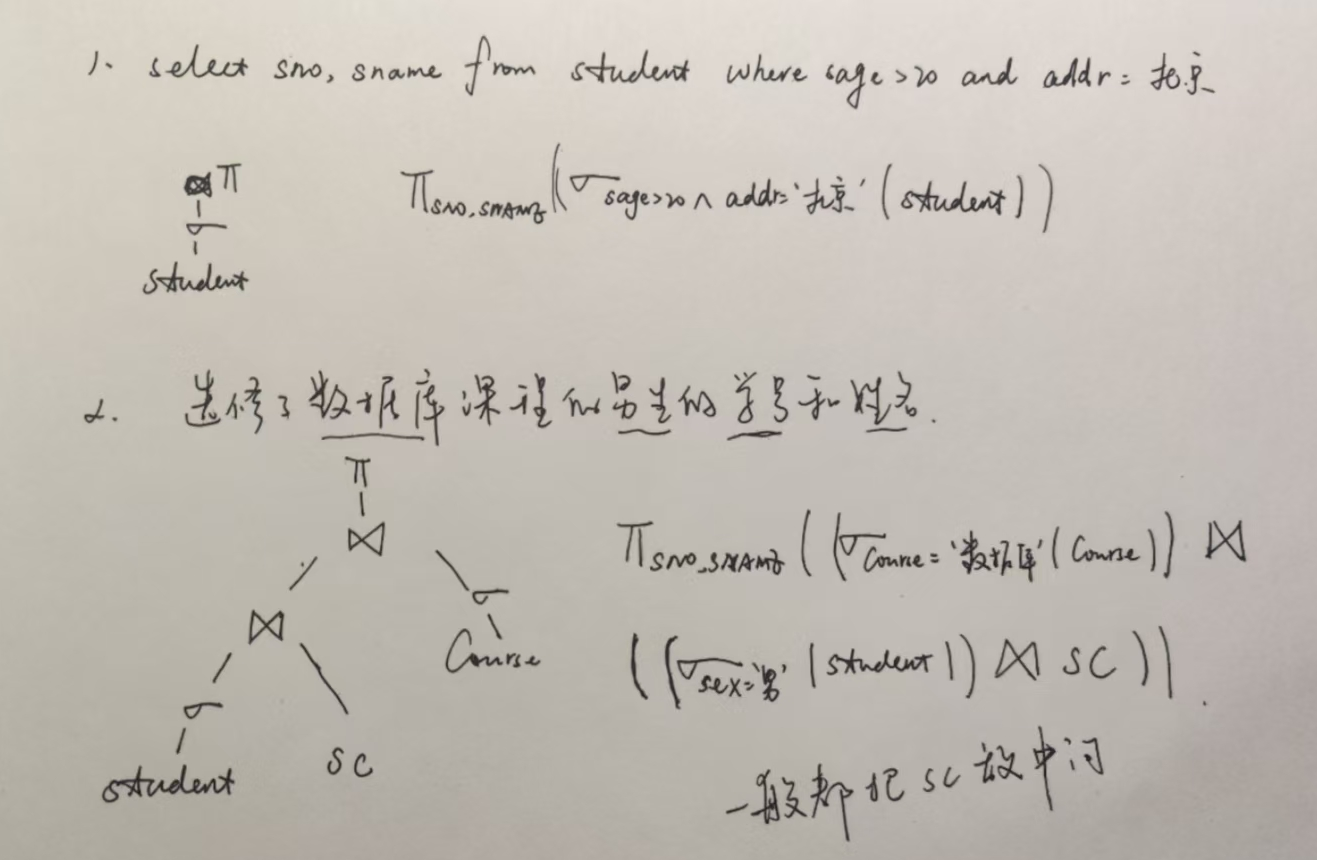 1. select sno, sname from student where sage>20 and addr=北京
π
σ
student
π SNO.SNAME (σ sage>20 ∧ addr='北京' (student))
2. 选修了数据库课程的男生的学号和姓名.
π
⋈
σ
⋈
Course
σ
student
SC
π SNO.SNAME ((σ Course='数据库' (Course)) ⋈
((σ sex='男' (student)) ⋈ SC))
一般都把SC放中间